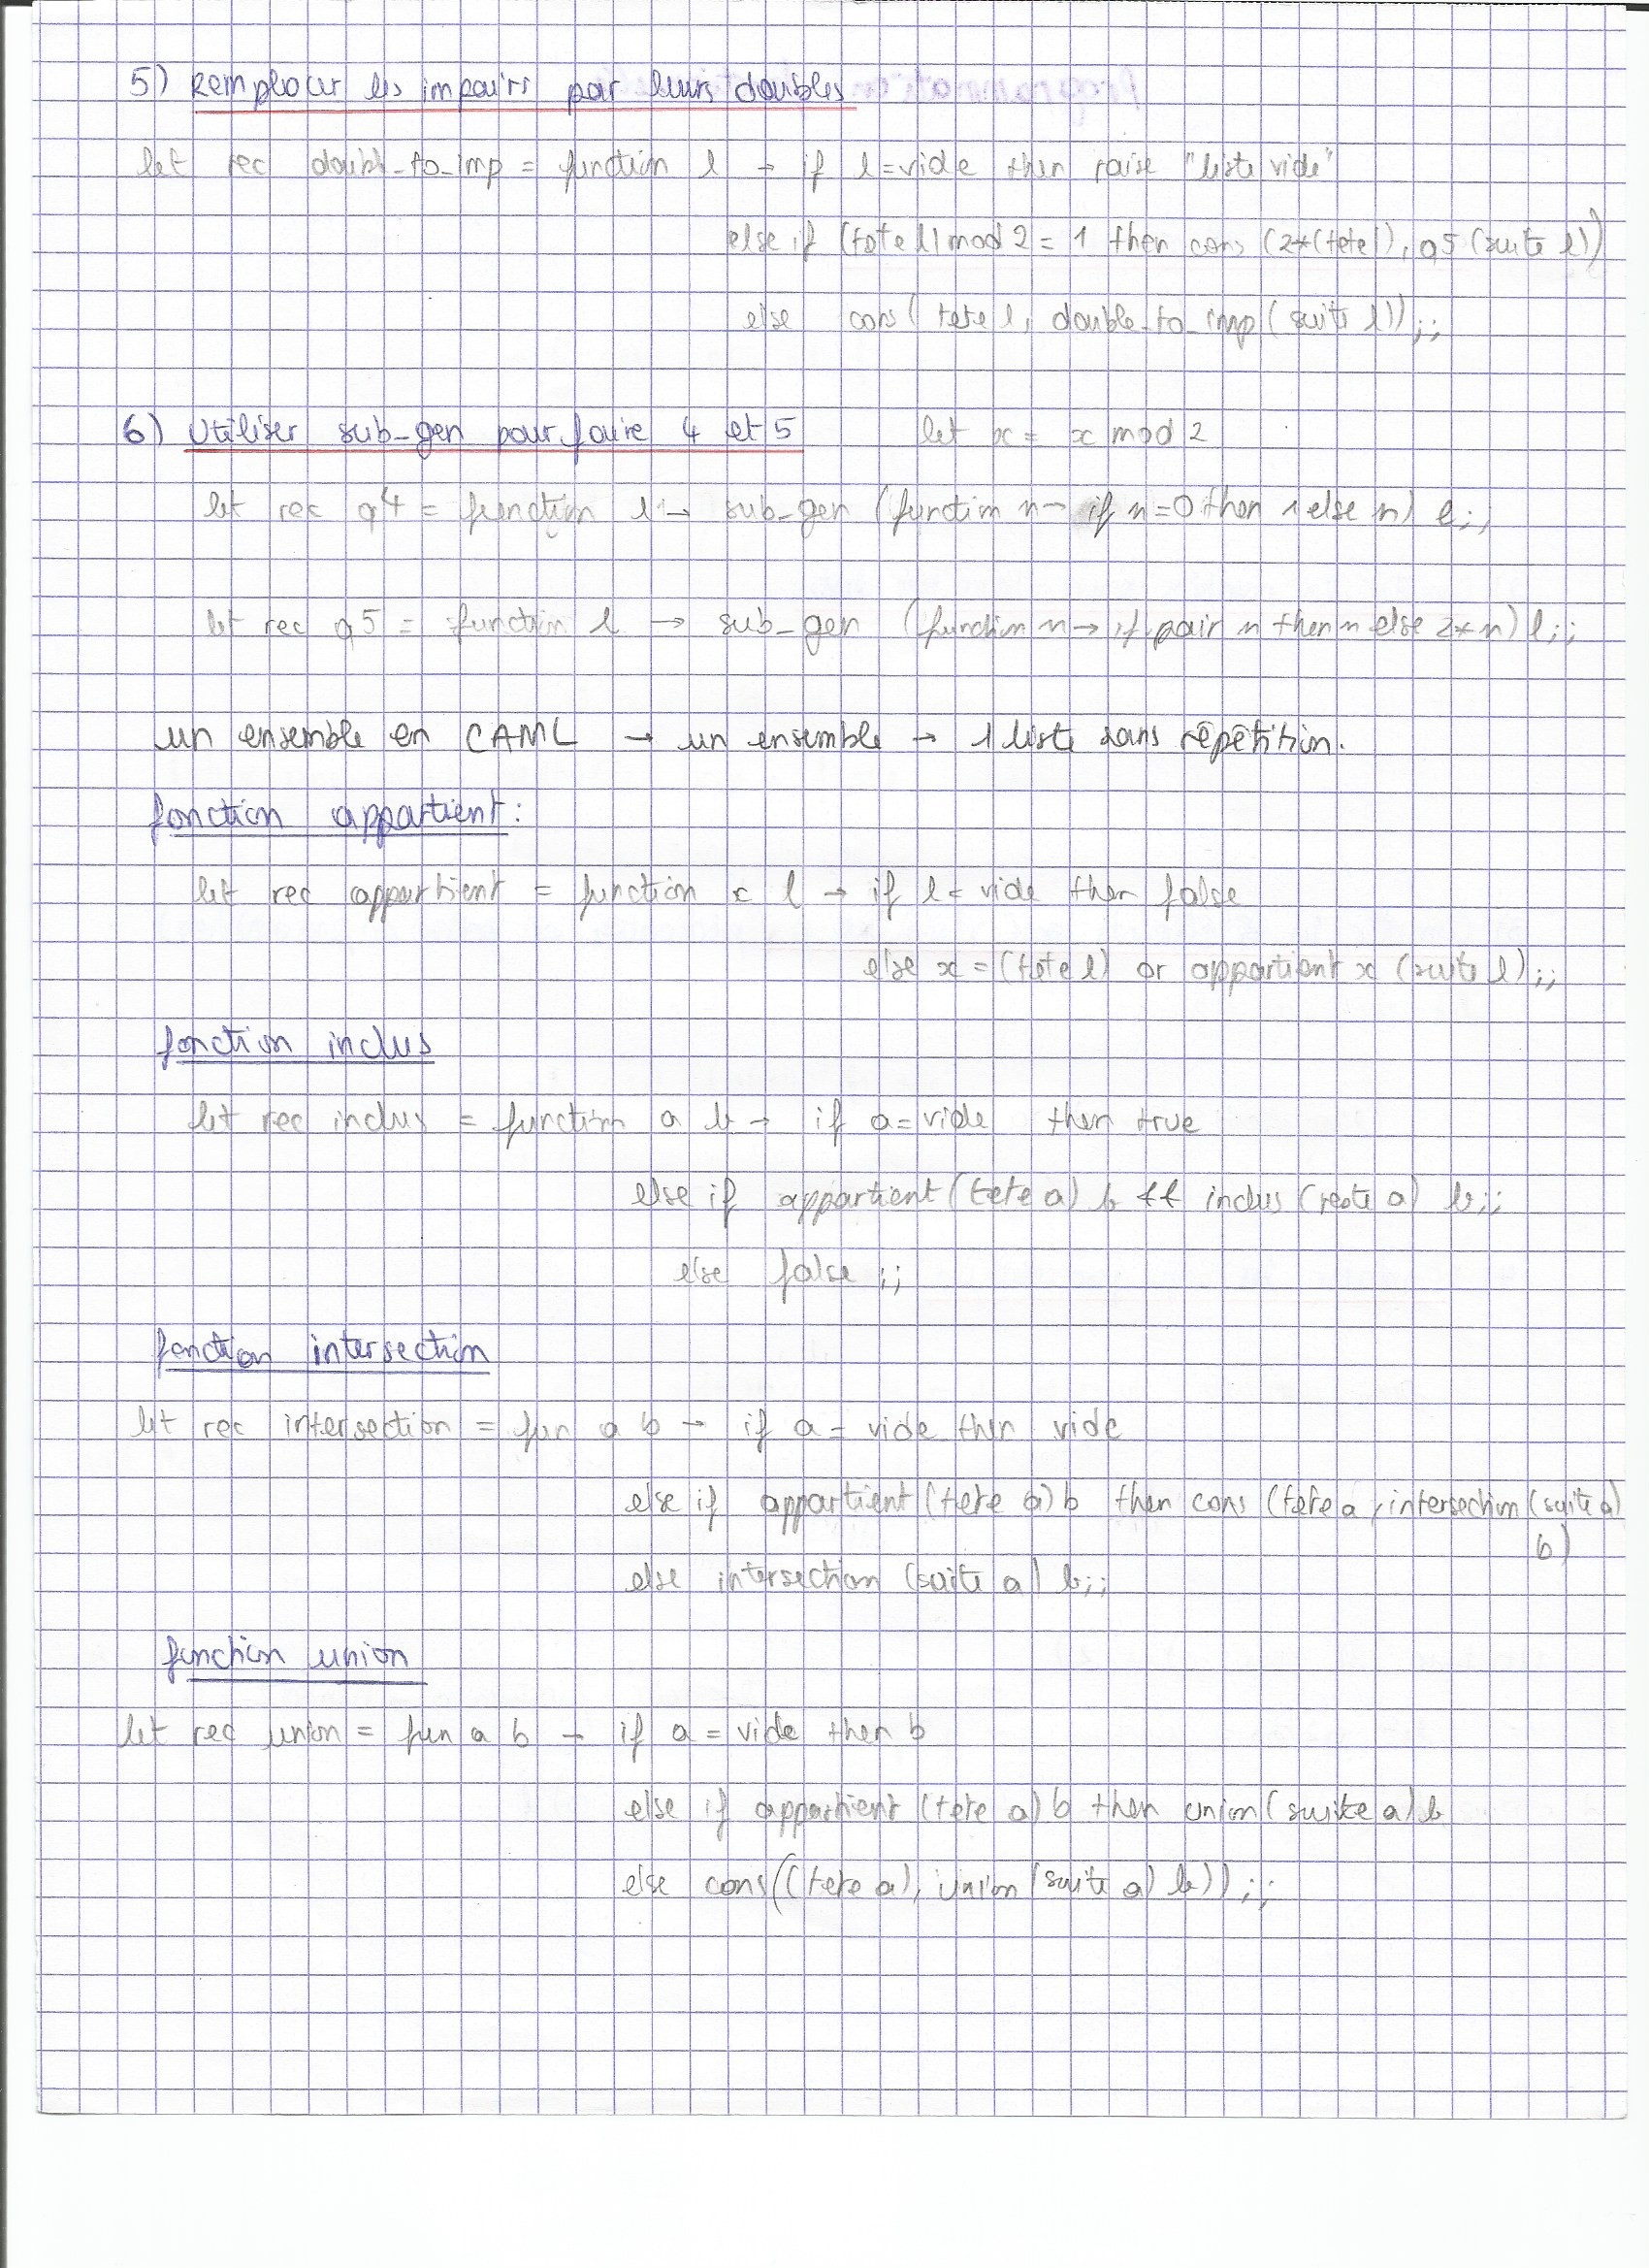 5) Remplacer les impairs par leurs doubles
let rec double_to_imp = function l → if l = vide then raise "liste vide"
else if (tete l) mod 2 = 1 then cons (2*(tete l), q5 (suite l))
else cons( tete l, double_to_imp (suite l));;
6) Utiliser sub_gen pour faire 4 et 5 let x = x mod 2
let rec q4 = function l → sub_gen (function n → if n=0 then 1 else n) l;;
let rec q5 = function l → sub_gen (function n → if pair n then n else 2*n) l;;
un ensemble en CAML → un ensemble → 1 liste sans répétition.
fonction appartient:
let rec appartient = function x l → if l = vide then false
else x = (tete l) or appartient x (suite l);;
fonction inclus
let rec inclus = function a b → if a = vide then true
else if appartient (tete a) b && inclus (reste a) b;;
else false ;;
fonction intersection
let rec intersection = fun a b → if a = vide then vide
else if appartient (tete a) b then cons (tete a, intersection (suite a)
b)
else intersection (suite a) b;;
function union
let rec union = fun a b → if a = vide then b
else if appartient (tete a) b then union (suite a) b
else cons((tete a), union (suite a) b));;